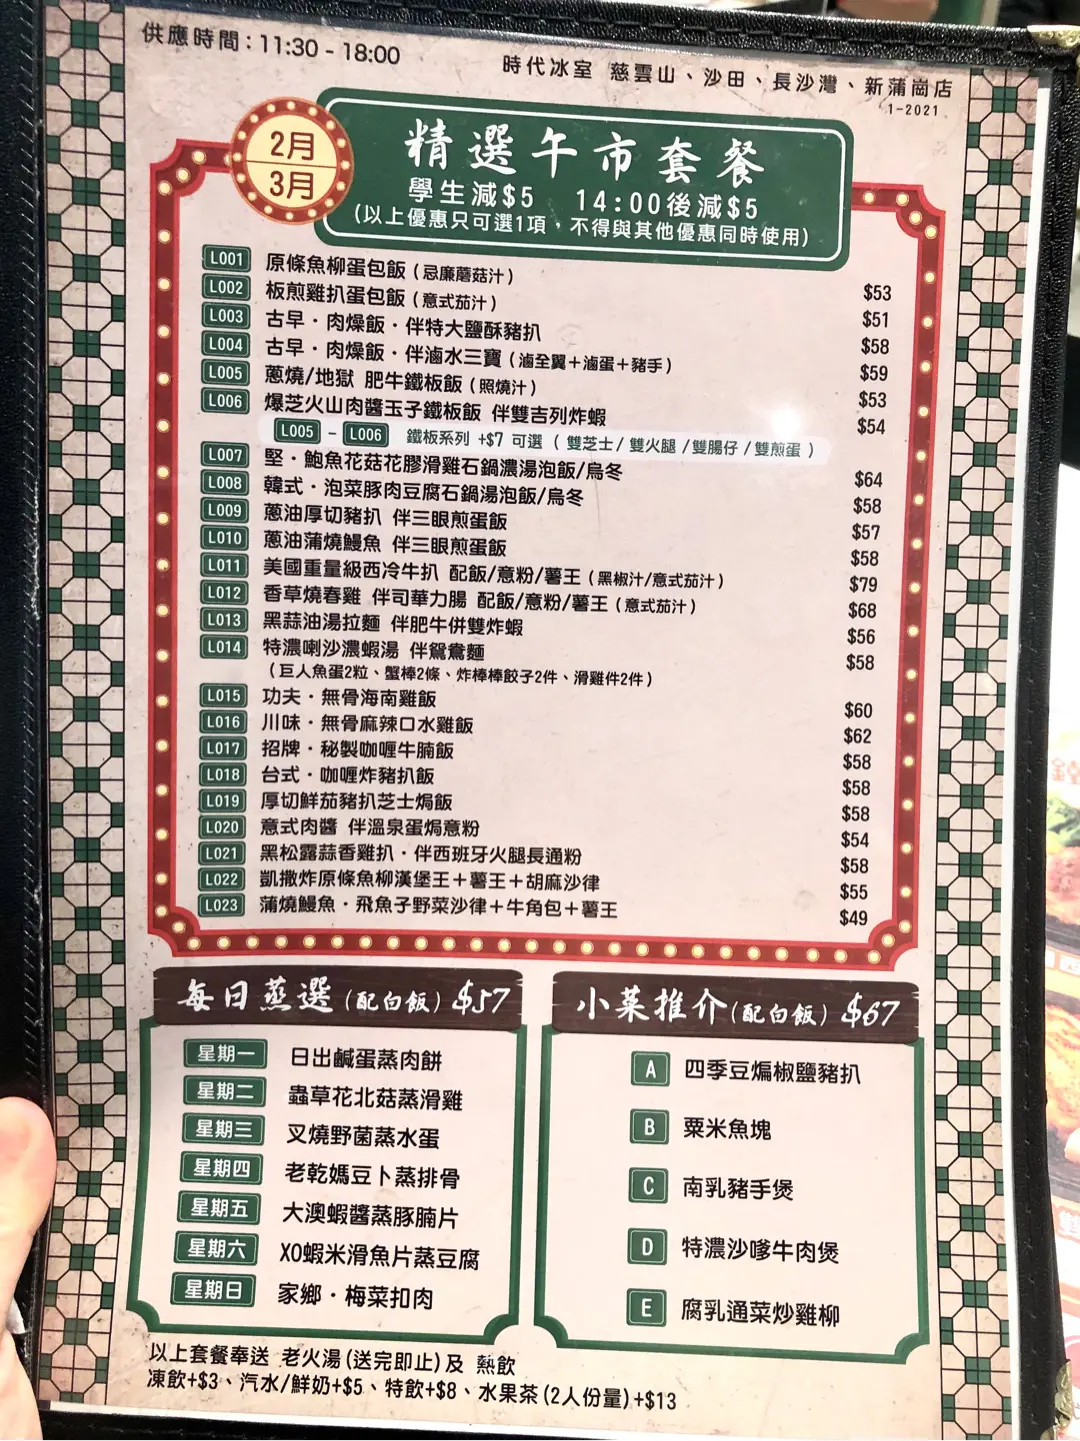 供應時間：11:30 - 18:00
時代冰室 慈雲山、沙田、長沙灣、新蒲崗店
1-2021
2月
3月
精選午市套餐
學生減$5 14:00後減$5
(以上優惠只可選1項，不得與其他優惠同時使用)
L001 原條魚柳蛋包飯 (忌廉蘑菇汁) $53
L002 板煎雞扒蛋包飯 (意式茄汁) $51
L003 古早・肉燥飯・伴特大鹽酥豬扒 $58
L004 古早・肉燥飯・伴滷水三寶 (滷全翼+滷蛋+豬手) $59
L005 蔥燒/地獄 肥牛鐵板飯 (照燒汁) $53
L006 爆芝火山肉醬玉子鐵板飯 伴雙吉列炸蝦 $54
L005 - L006 鐵板系列 +$7 可選 ( 雙芝士/ 雙火腿 /雙腸仔 /雙煎蛋 )
L007 堅・鮑魚花菇花膠滑雞石鍋濃湯泡飯/烏冬 $64
L008 韓式・泡菜豚肉豆腐石鍋湯泡飯/烏冬 $58
L009 蔥油厚切豬扒 伴三眼煎蛋飯 $57
L010 蔥油蒲燒鰻魚 伴三眼煎蛋飯 $58
L011 美國重量級西冷牛扒 配飯/意粉/薯王 (黑椒汁/意式茄汁) $79
L012 香草燒春雞 伴司華力腸 配飯/意粉/薯王 (意式茄汁) $68
L013 黑蒜油湯拉麵 伴肥牛併雙炸蝦 $56
L014 特濃喇沙濃蝦湯 伴鴛鴦麵 $58
(巨人魚蛋2粒、蟹棒2條、炸棒棒餃子2件、滑雞件2件)
L015 功夫・無骨海南雞飯 $60
L016 川味・無骨麻辣口水雞飯 $62
L017 招牌・秘製咖喱牛腩飯 $58
L018 台式・咖喱炸豬扒飯 $58
L019 厚切鮮茄豬扒芝士焗飯 $58
L020 意式肉醬 伴溫泉蛋焗意粉 $54
L021 黑松露蒜香雞扒・伴西班牙火腿長通粉 $58
L022 凱撒炸原條魚柳漢堡王+薯王+胡麻沙律 $55
L023 蒲燒鰻魚・飛魚子野菜沙律+牛角包+薯王 $49
每日蒸選 (配白飯) $57
星期一 日出鹹蛋蒸肉餅
星期二 蟲草花北菇蒸滑雞
星期三 叉燒野菌蒸水蛋
星期四 老乾媽豆卜蒸排骨
星期五 大澳蝦醬蒸豚腩片
星期六 XO蝦米滑魚片蒸豆腐
星期日 家鄉・梅菜扣肉
小菜推介 (配白飯) $67
A 四季豆煸椒鹽豬扒
B 粟米魚塊
C 南乳豬手煲
D 特濃沙嗲牛肉煲
E 腐乳通菜炒雞柳
以上套餐奉送 老火湯 (送完即止) 及 熱飲
凍飲+$3、汽水/鮮奶+$5、特飲+$8、水果茶 (2人份量) +$13